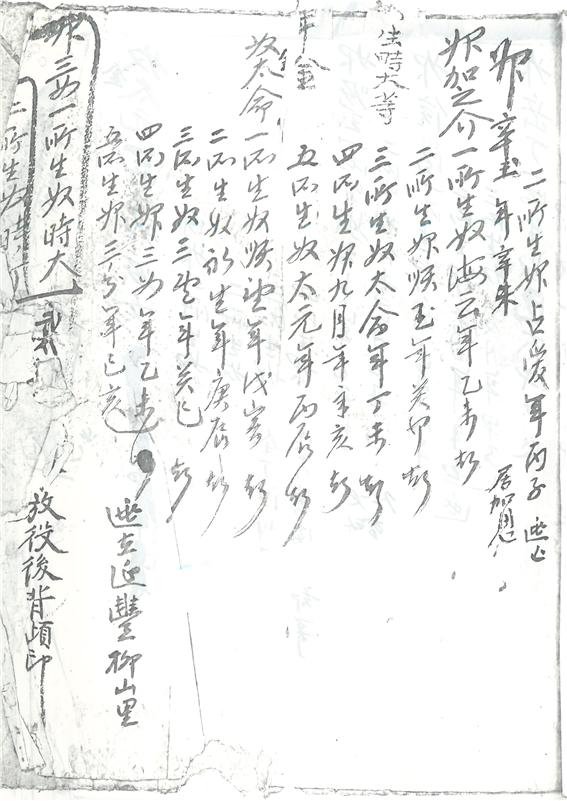 二所生婢占愛年丙子 逃亡
婢辛玉年辛未 居加恩
婢加之介一所生奴海云年乙未
二所生婢順玉年癸卯
生時大等
三所生奴太命年丁未
四所生婢九月年辛亥
五所生奴太元年丙辰
年金
奴太命一所生奴順 年戊寅
二所生奴 生年庚辰
三所生奴三 年癸巳
四所生婢三女年乙未 逃在延豊柳山里
五所生婢三分年己亥
婢三女一所生奴時大
放役後背頉印
二所生奴時